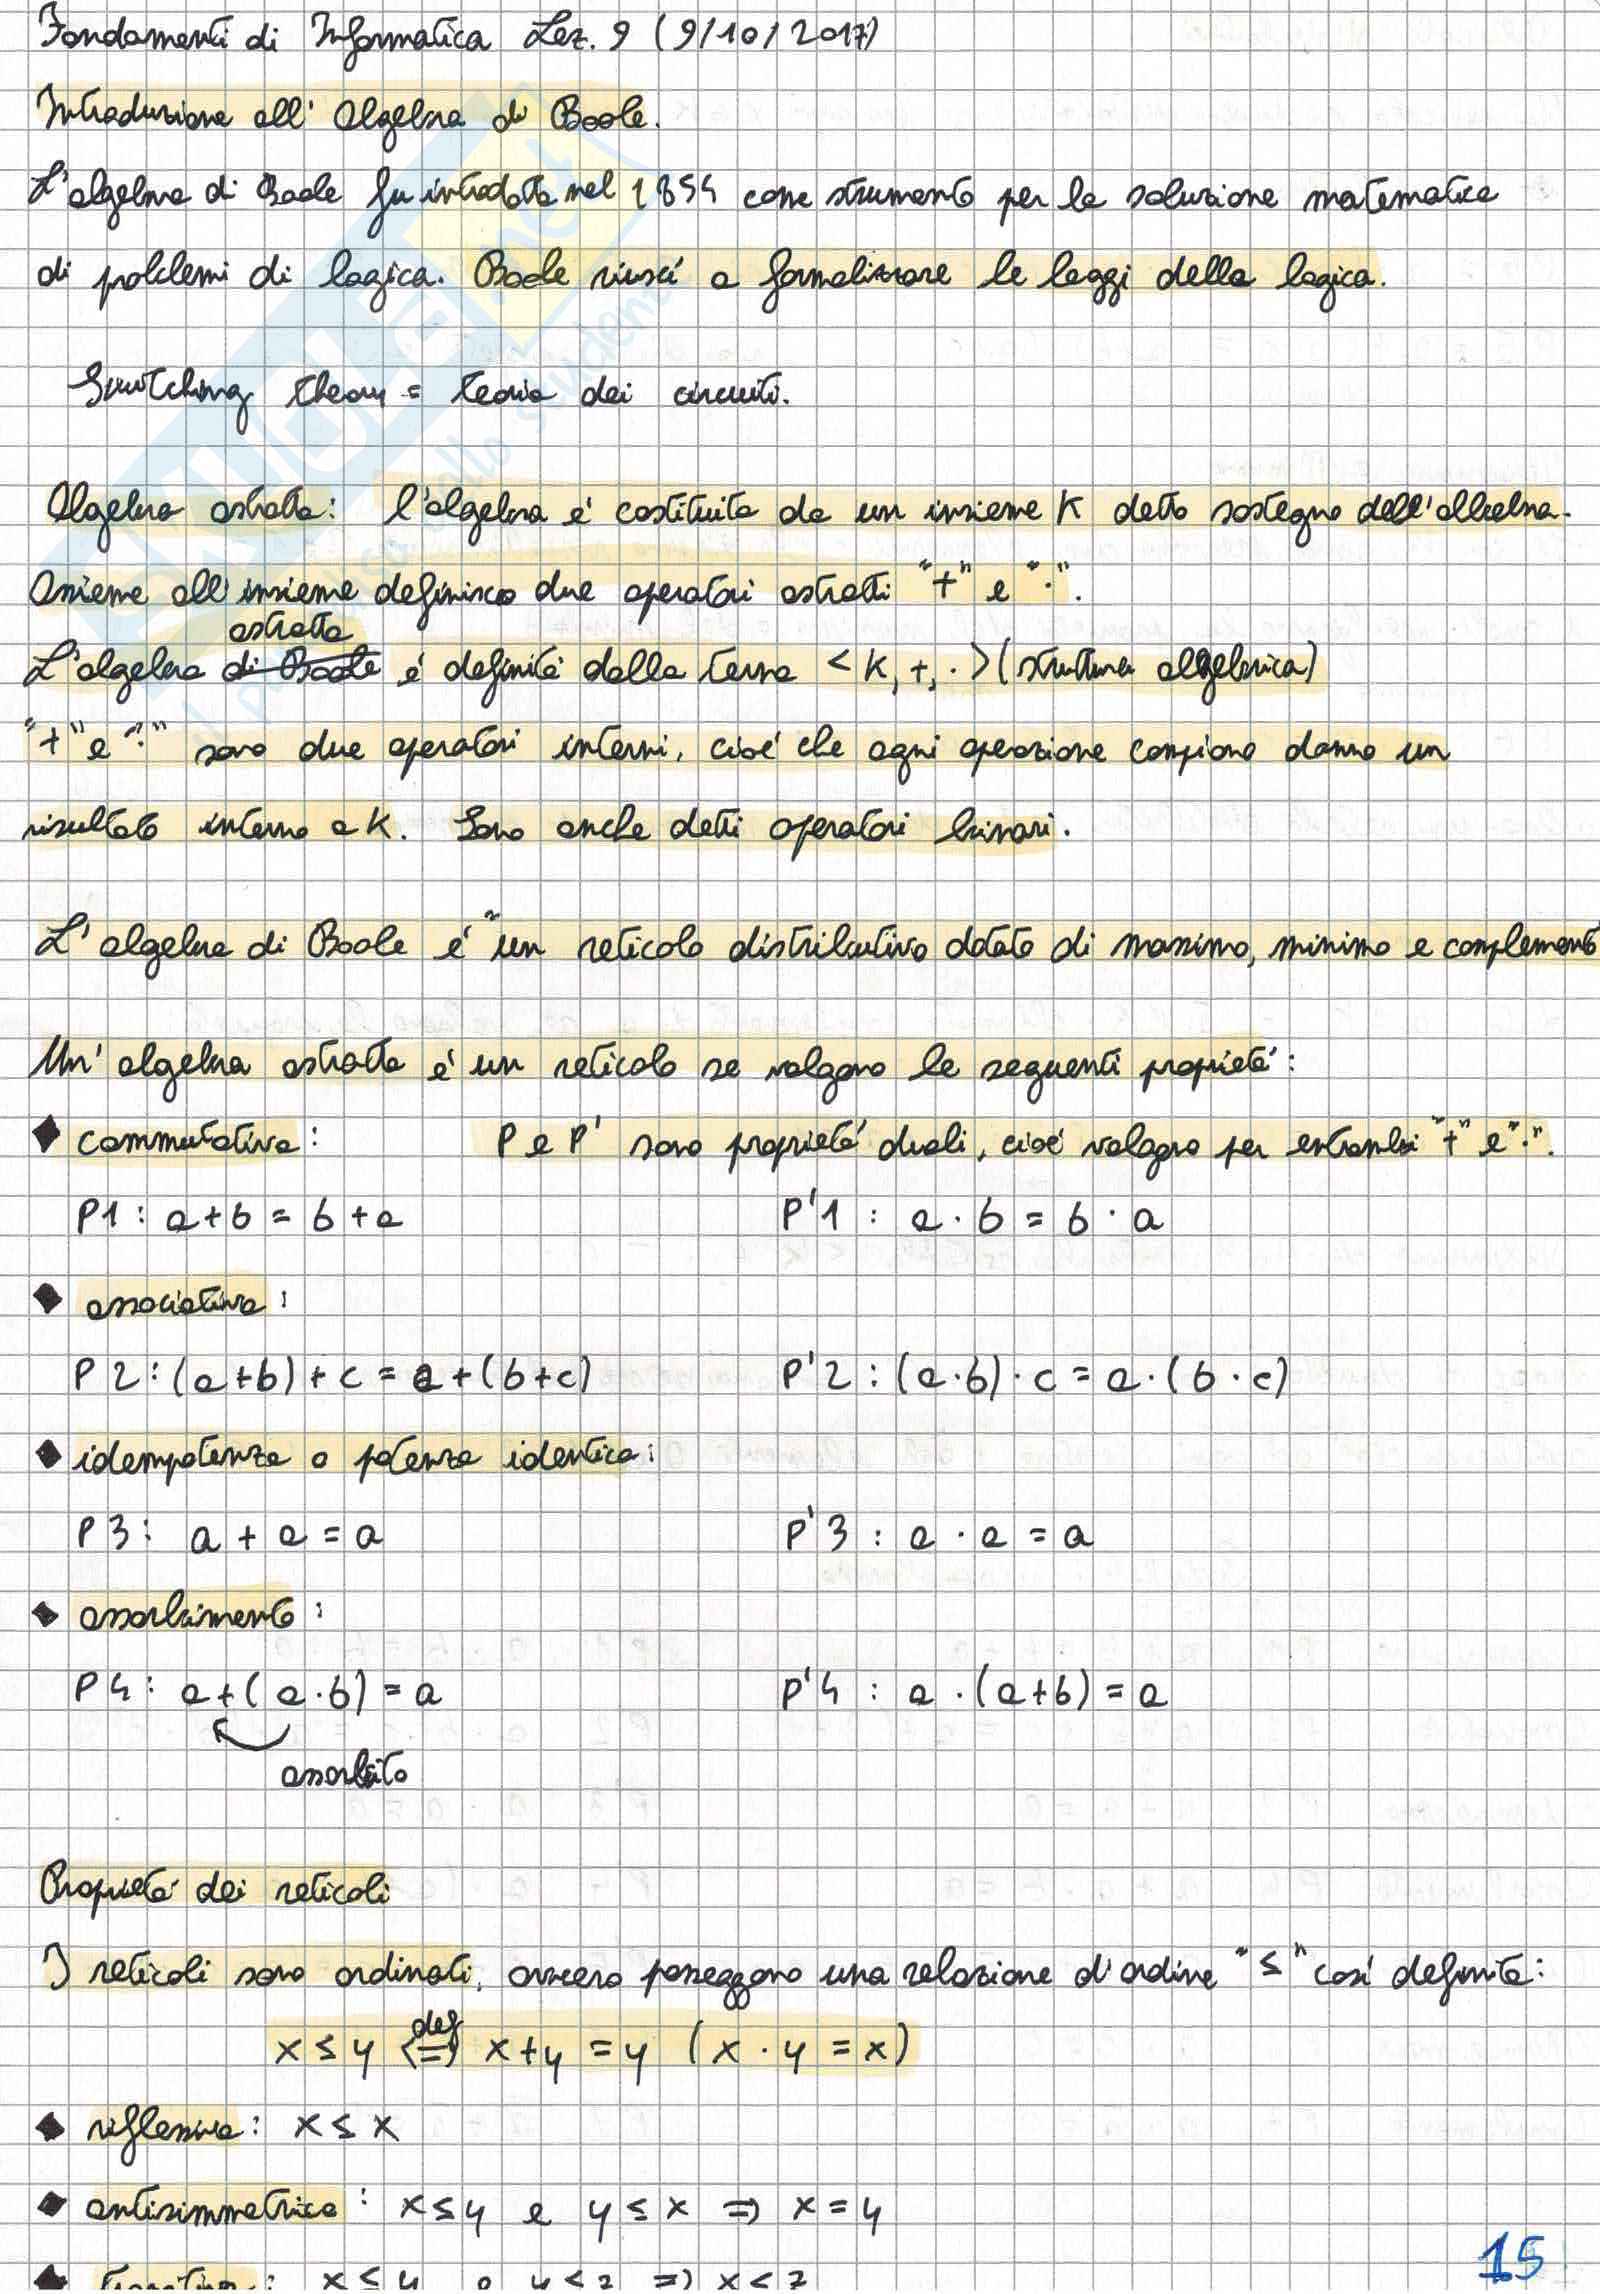 Fondamenti di Informatica Lez. 9 (9/10/2017)
Introduzione all'Algebra di Boole.
L'algebra di Boole fu introdotta nel 1854 come strumento per la soluzione matematica
di problemi di logica. Boole riuscì a formalizzare le leggi della logica.
Switching theory = teoria dei circuiti.
Algebra astratta: l'algebra è costituita da un insieme K detto sostegno dell'algebra.
Assieme all'insieme definisco due operatori astratti "+" e "·".
astratta
L'algebra di Boole è definita dalla terna <K, +, ·> (struttura algebrica)
"+" e "·" sono due operatori interni, cioè che ogni operazione compiono danno un
risultato interno a K. Sono anche detti operatori binari.
L'algebra di Boole è "un reticolo distributivo dotato di massimo, minimo e complemento
Un'algebra astratta è un reticolo se valgono le seguenti proprietà:
◆ commutativa: P e P' sono proprietà duali, cioè valgono per entrambi "+" e "·".
P1: a+b = b+a P'1: a·b = b·a
◆ associativa:
P2: (a+b)+c = a+(b+c) P'2: (a·b)·c = a·(b·c)
◆ idempotenza o potenza identica:
P3: a + a = a P'3: a · a = a
◆ assorbimento:
P4: a+(a·b) = a P'4: a·(a+b) = a
assorbito
Proprietà dei reticoli
I reticoli sono ordinati, ovvero posseggono una relazione d'ordine "≤" così definita:
def
x ≤ y <=> x+y = y (x · y = x)
◆ riflessiva: x ≤ x
◆ antisimmetrica: x ≤ y e y ≤ x => x = y
◆ transitiva: x ≤ y e y ≤ z => x ≤ z
15